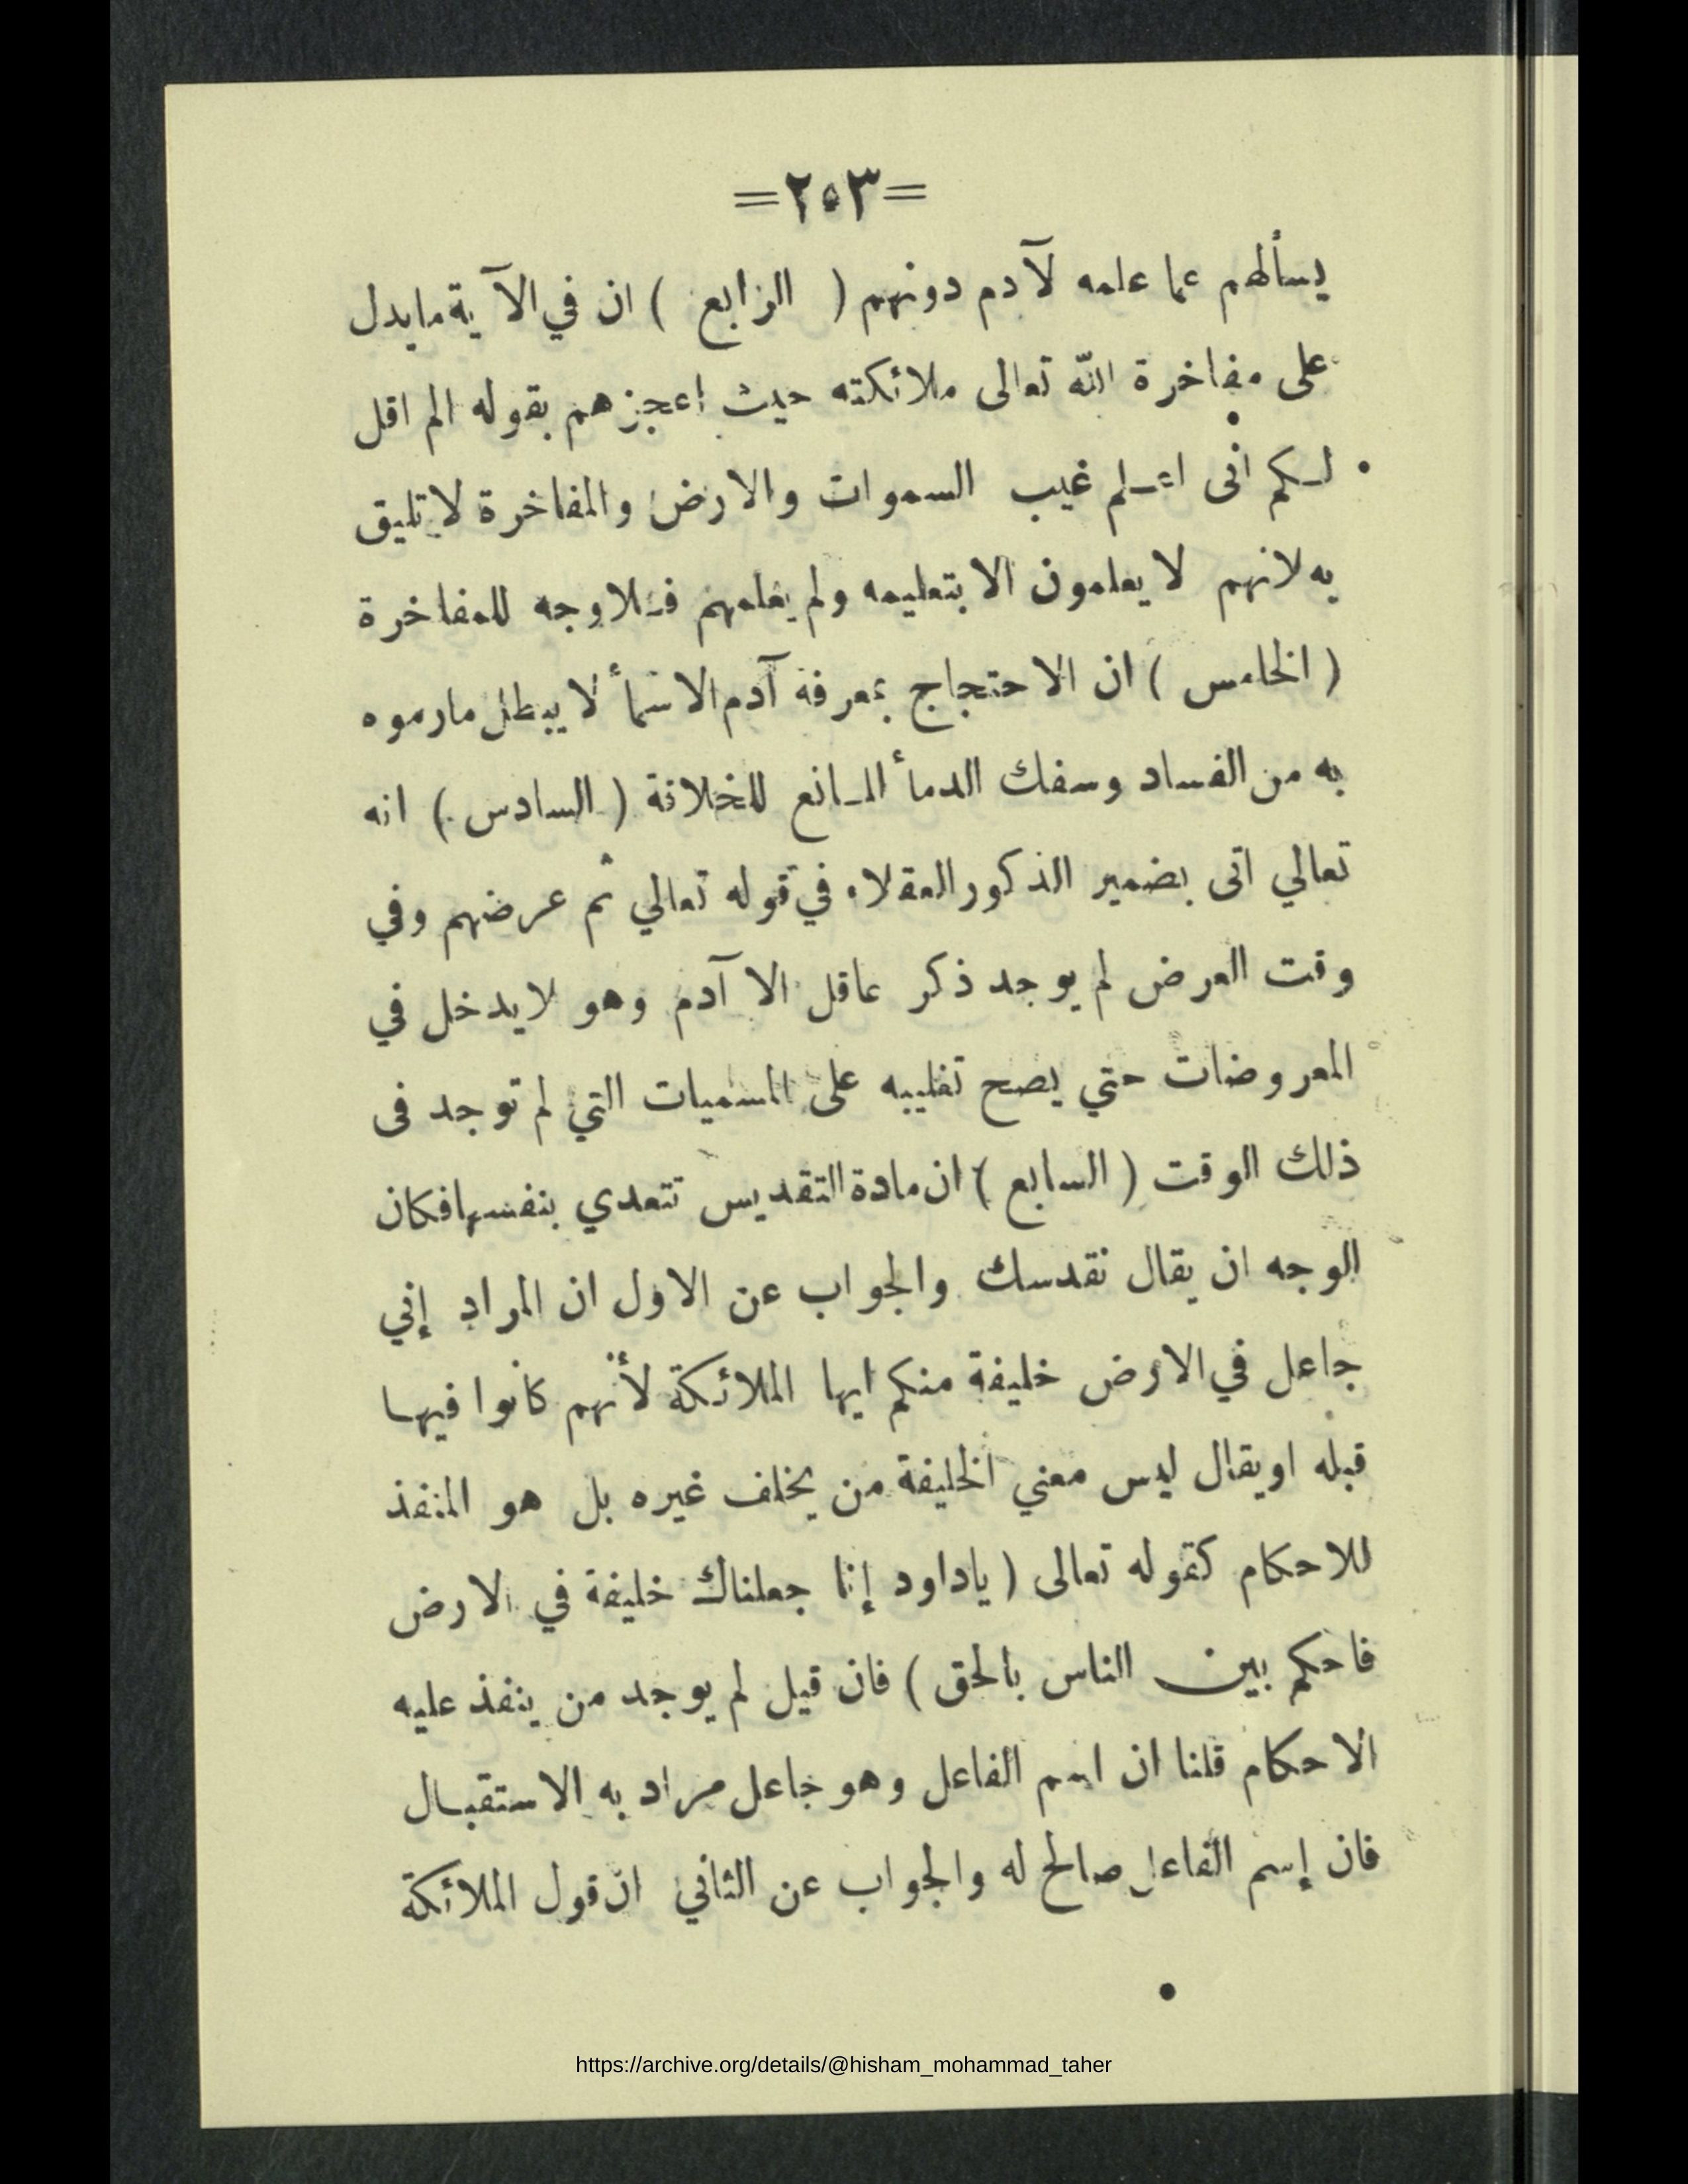 =٢٥٣=
يسألهم عما علمه لآدم دونهم ( الرابع ) ان في الآية مايدل
على مفاخرة الله تعالى ملائكته حيث اعجزهم بقوله الم اقل
لكم انى اعلم غيب السموات والارض والمفاخرة لا تليق
به لانهم لا يعلمون الا بتعليمه ولم يعلمهم فلا وجه للمفاخرة
( الخامس ) ان الاحتجاج بمعرفة آدم الاسمأ لا يبطل مارموه
به من الفساد وسفك الدمأ المانع للخلافة ( السادس ) انه
تعالي اتى بضمير الذكور العقلاء في قوله تعالي ثم عرضهم وفي
وقت العرض لم يوجد ذكر عاقل الا آدم وهو لا يدخل في
المعروضات حتي يصح تغليبه على المسميات التي لم توجد فى
ذلك الوقت ( السابع ) ان مادة التقديس تتعدي بنفسها فكان
الوجه ان يقال نقدسك والجواب عن الاول ان المراد إني
جاعل في الارض خليفة منكم ايها الملائكة لأنهم كانوا فيها
قبله او يقال ليس معني الخليفة من يخلف غيره بل هو المنفذ
للاحكام كقوله تعالى ( ياداود إنا جعلناك خليفة في الارض
فاحكم بين الناس بالحق ) فان قيل لم يوجد من ينفذ عليه
الاحكام قلنا ان اسم الفاعل وهو جاعل مراد به الاستقبال
فان إسم الفاعل صالح له والجواب عن الثاني ان قول الملائكة
https://archive.org/details/@hisham_mohammad_taher